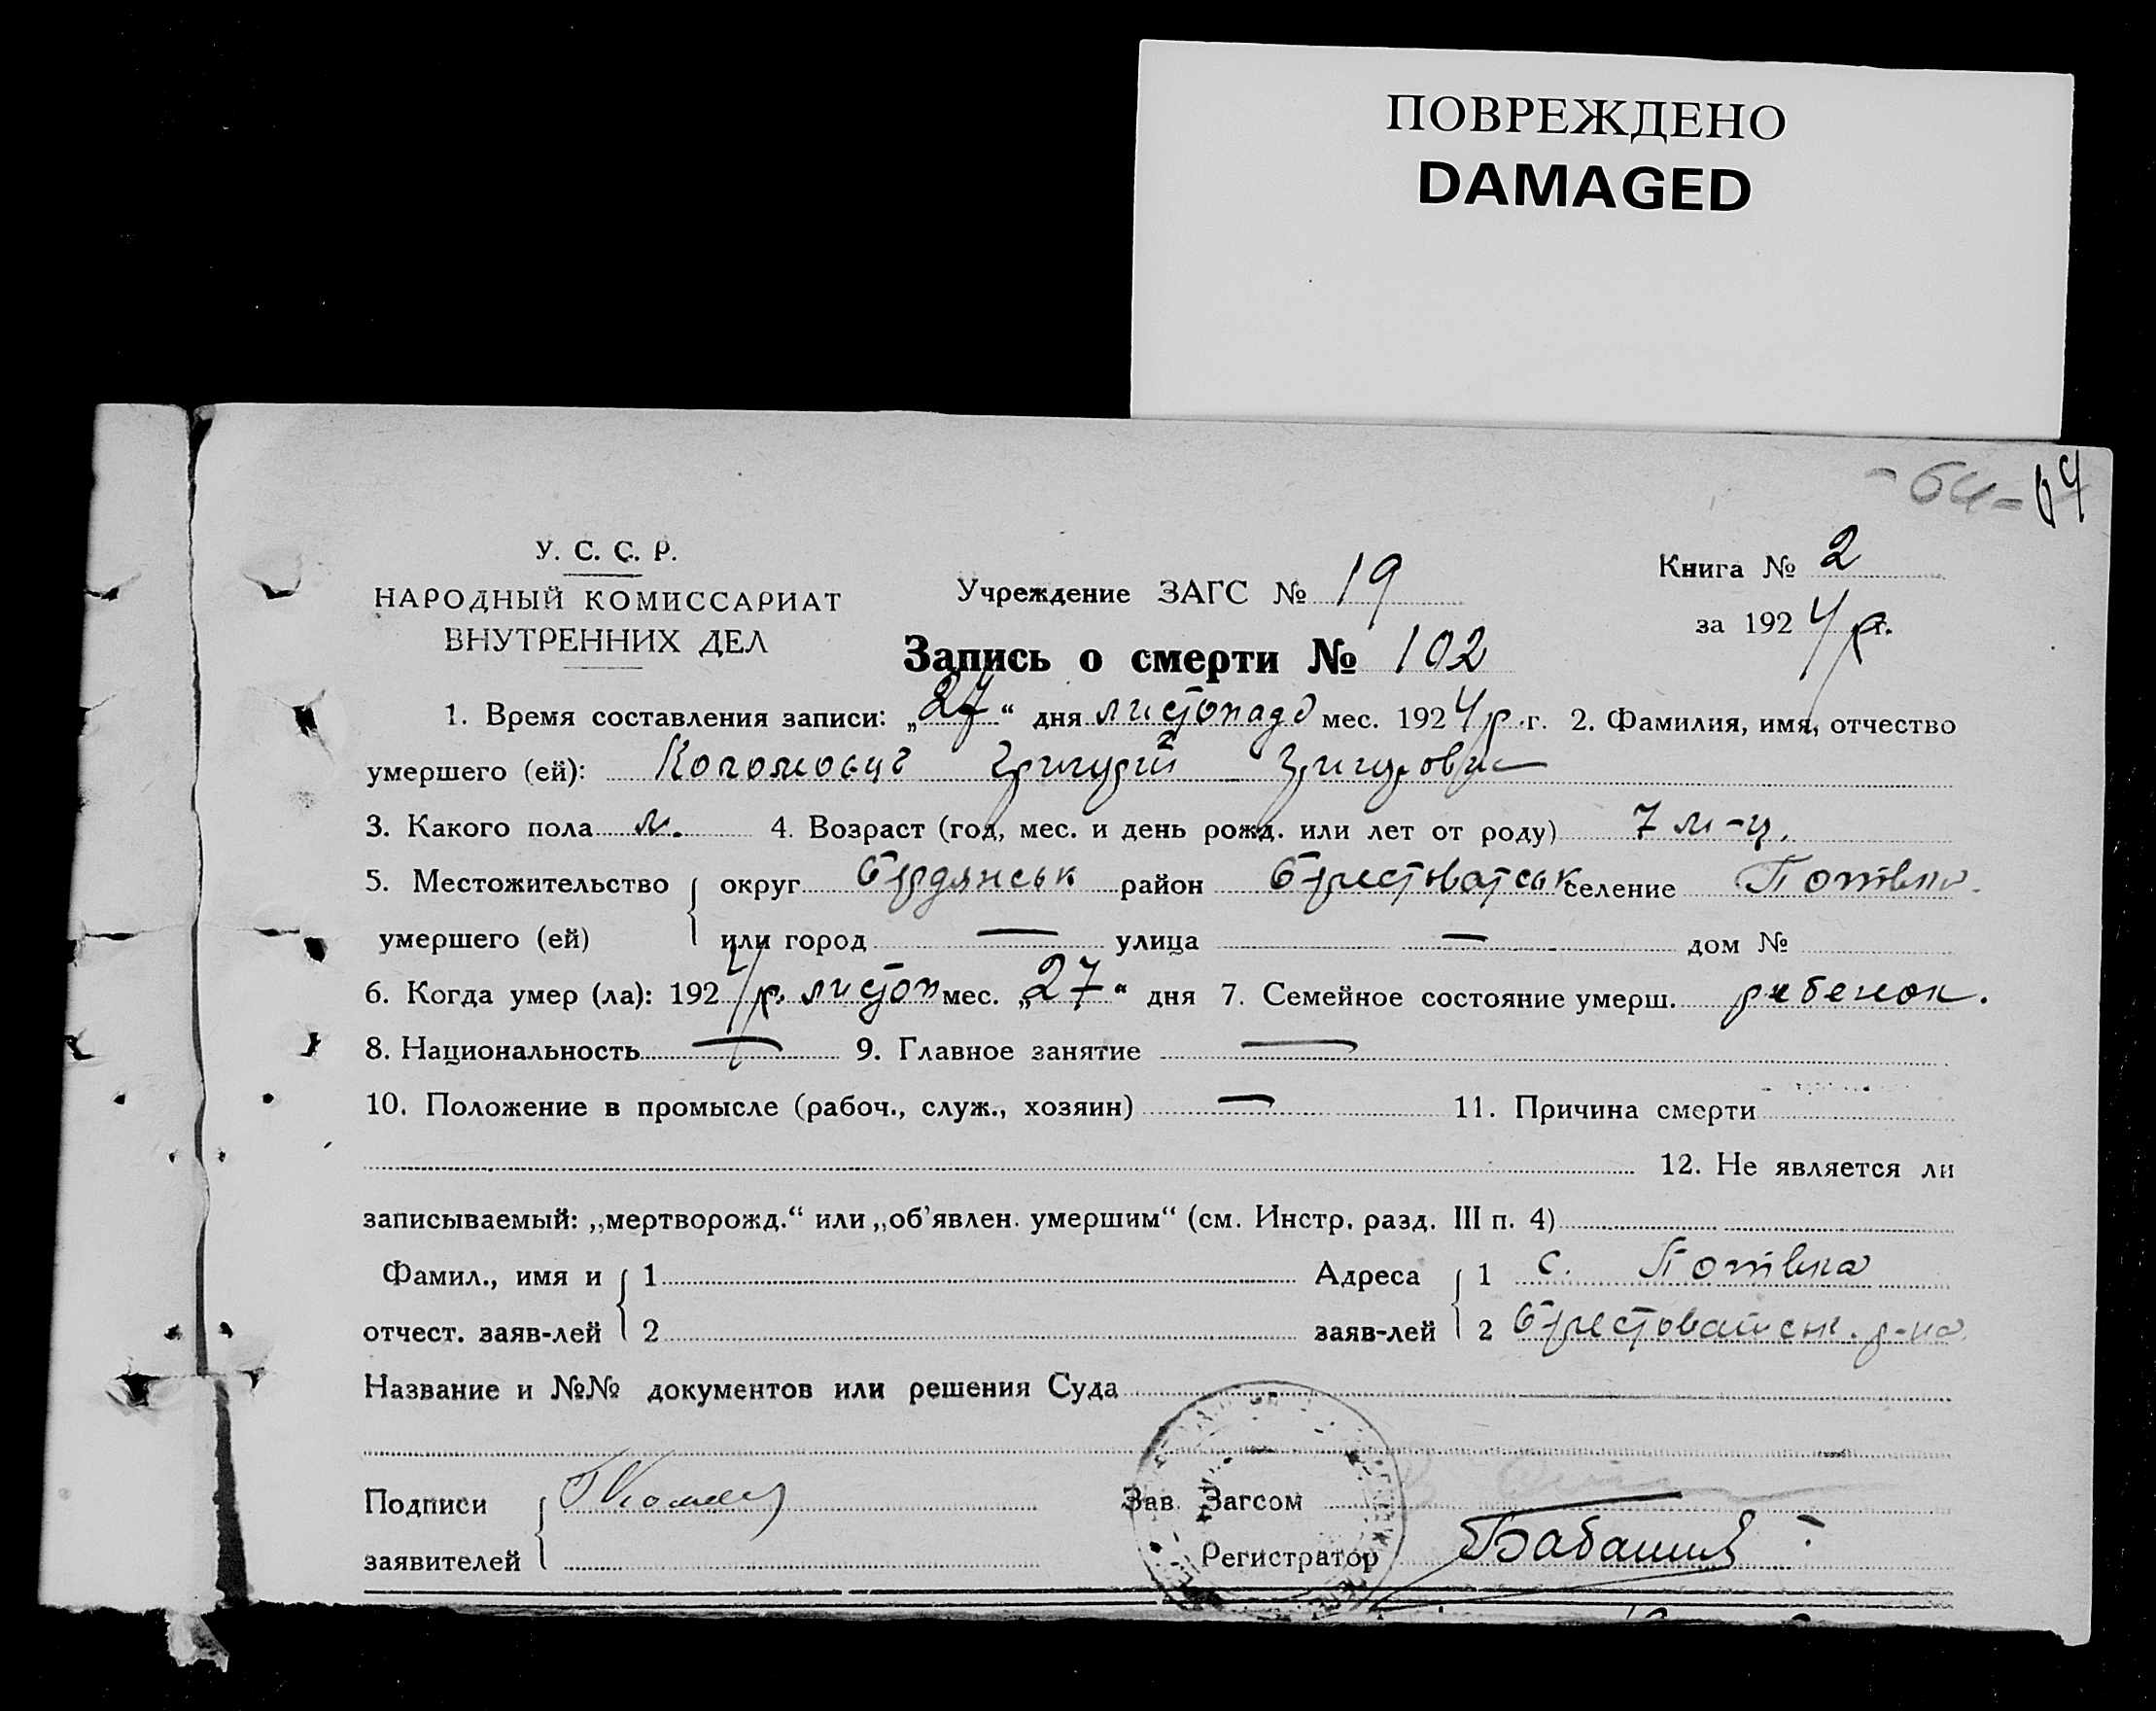 ПОВРЕЖДЕНО
DAMAGED
-64- 64
У. С. С. Р.
НАРОДНЫЙ КОМИССАРИАТ
ВНУТРЕННИХ ДЕЛ
Учреждение ЗАГС № 19
Книга № 2
за 1924 р. г.
Запись о смерти № 102
1. Время составления записи: „27“ дня листопада мес. 1924 р. г. 2. Фамилия, имя, отчество
умершего (ей): Григорій
3. Какого пола м. 4. Возраст (год, мес. и день рожд. или лет от роду) 7 м-ц.
5. Местожительство округ Бердянськ район селение
умершего (ей) или город — улица — дом №
6. Когда умер (ла): 1924 р. листоп мес. „27“ дня 7. Семейное состояние умерш. ребенок.
8. Национальность — 9. Главное занятие —
10. Положение в промысле (рабоч., служ., хозяин) — 11. Причина смерти
12. Не является ли
записываемый: „мертворожд.“ или „об’явлен. умершим“ (см. Инстр. разд. III п. 4)
Фамил., имя и 1 Адреса 1 с.
отчест. заяв-лей 2 заяв-лей 2 р-на
Название и №№ документов или решения Суда
Подписи Зав. Загсом
заявителей Регистратор